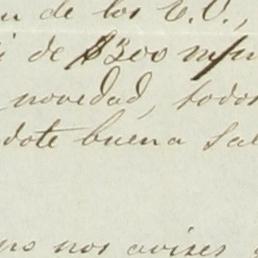 de los E.U.,
de $300 m/n
novedad, todos
dote buena sal
no nos avises